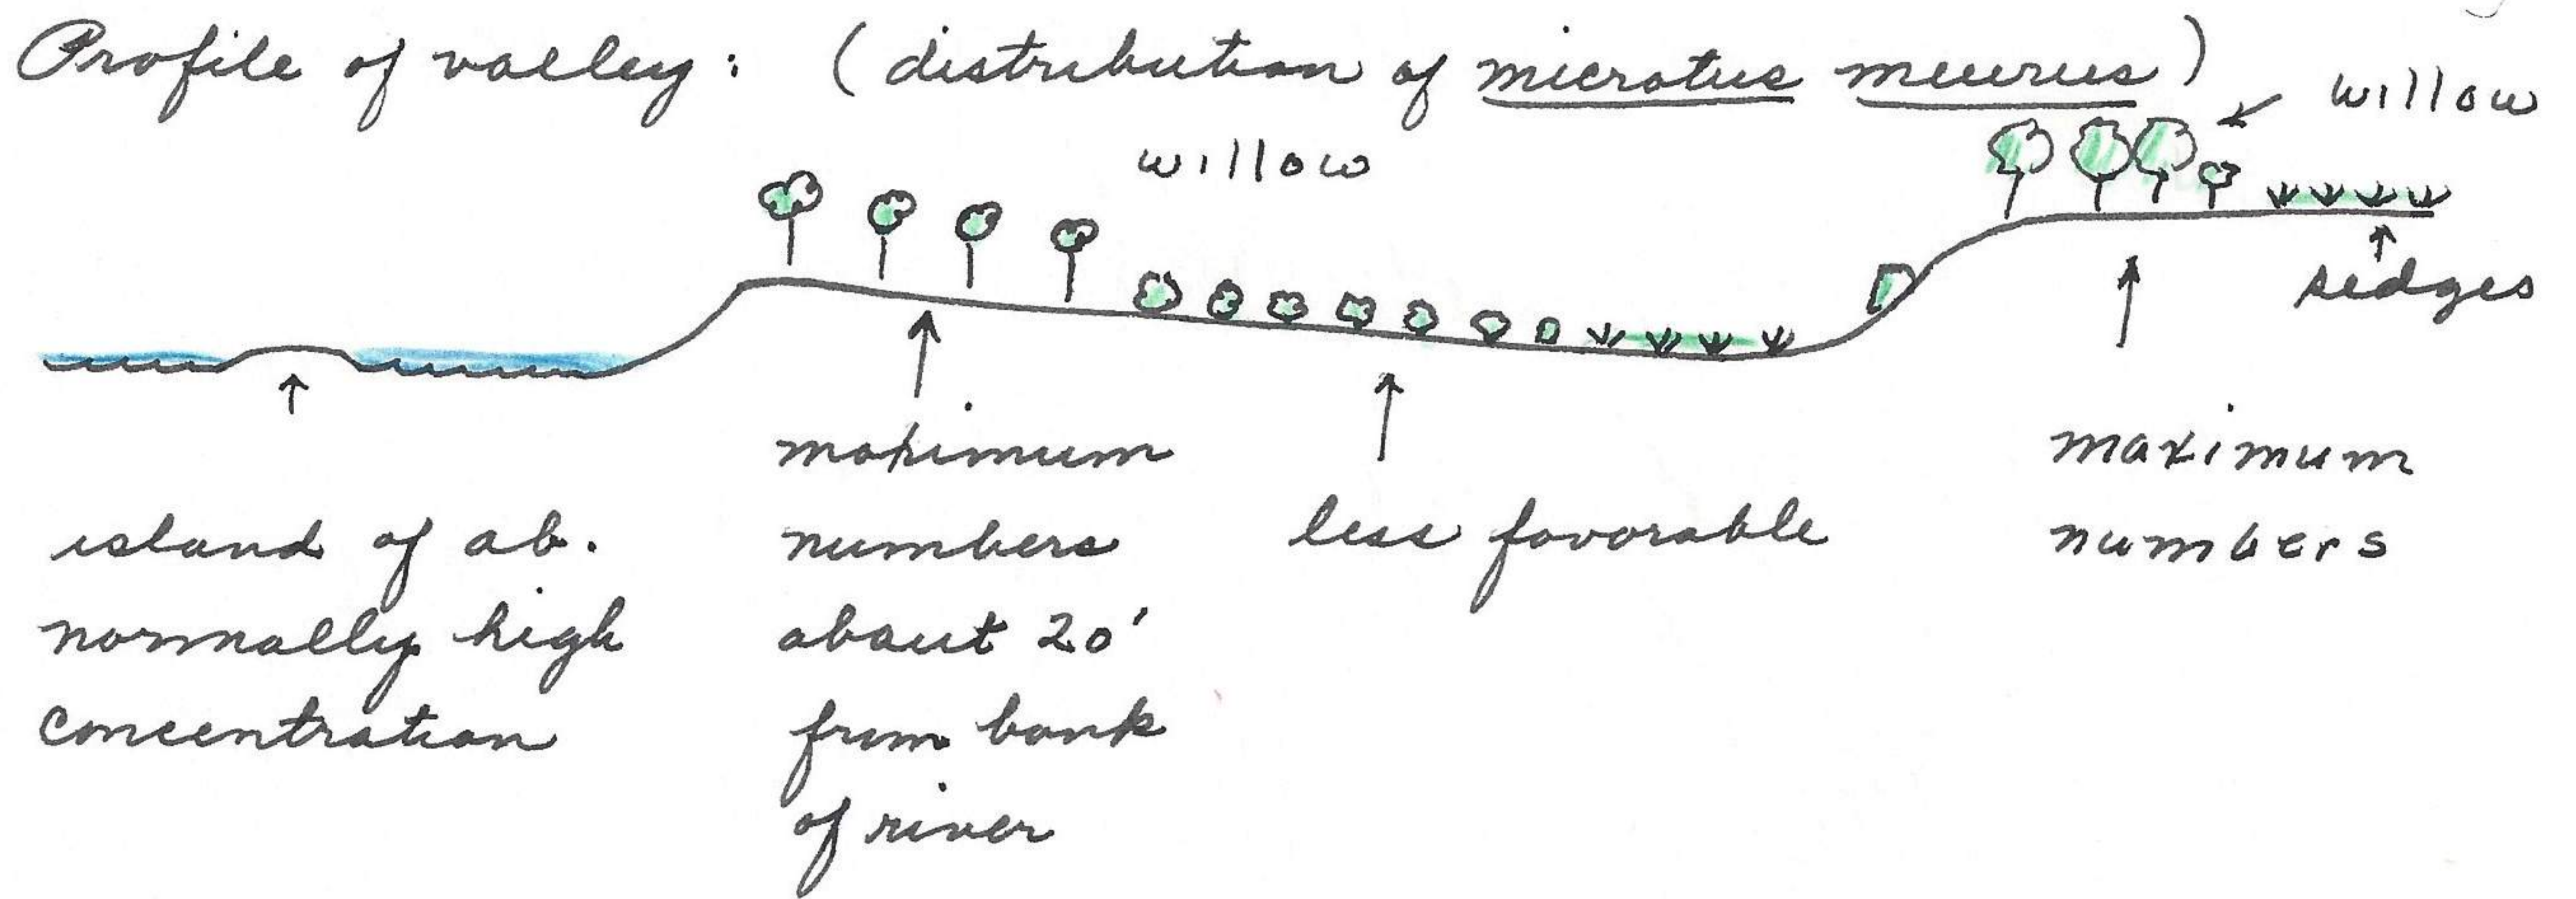 Profile of valley: (distribution of microtus muurus)
willow
willow
sedges
island of ab.
normally high
concentration
maximum
numbers
about 20'
from bank
of river
less favorable
maximum
numbers